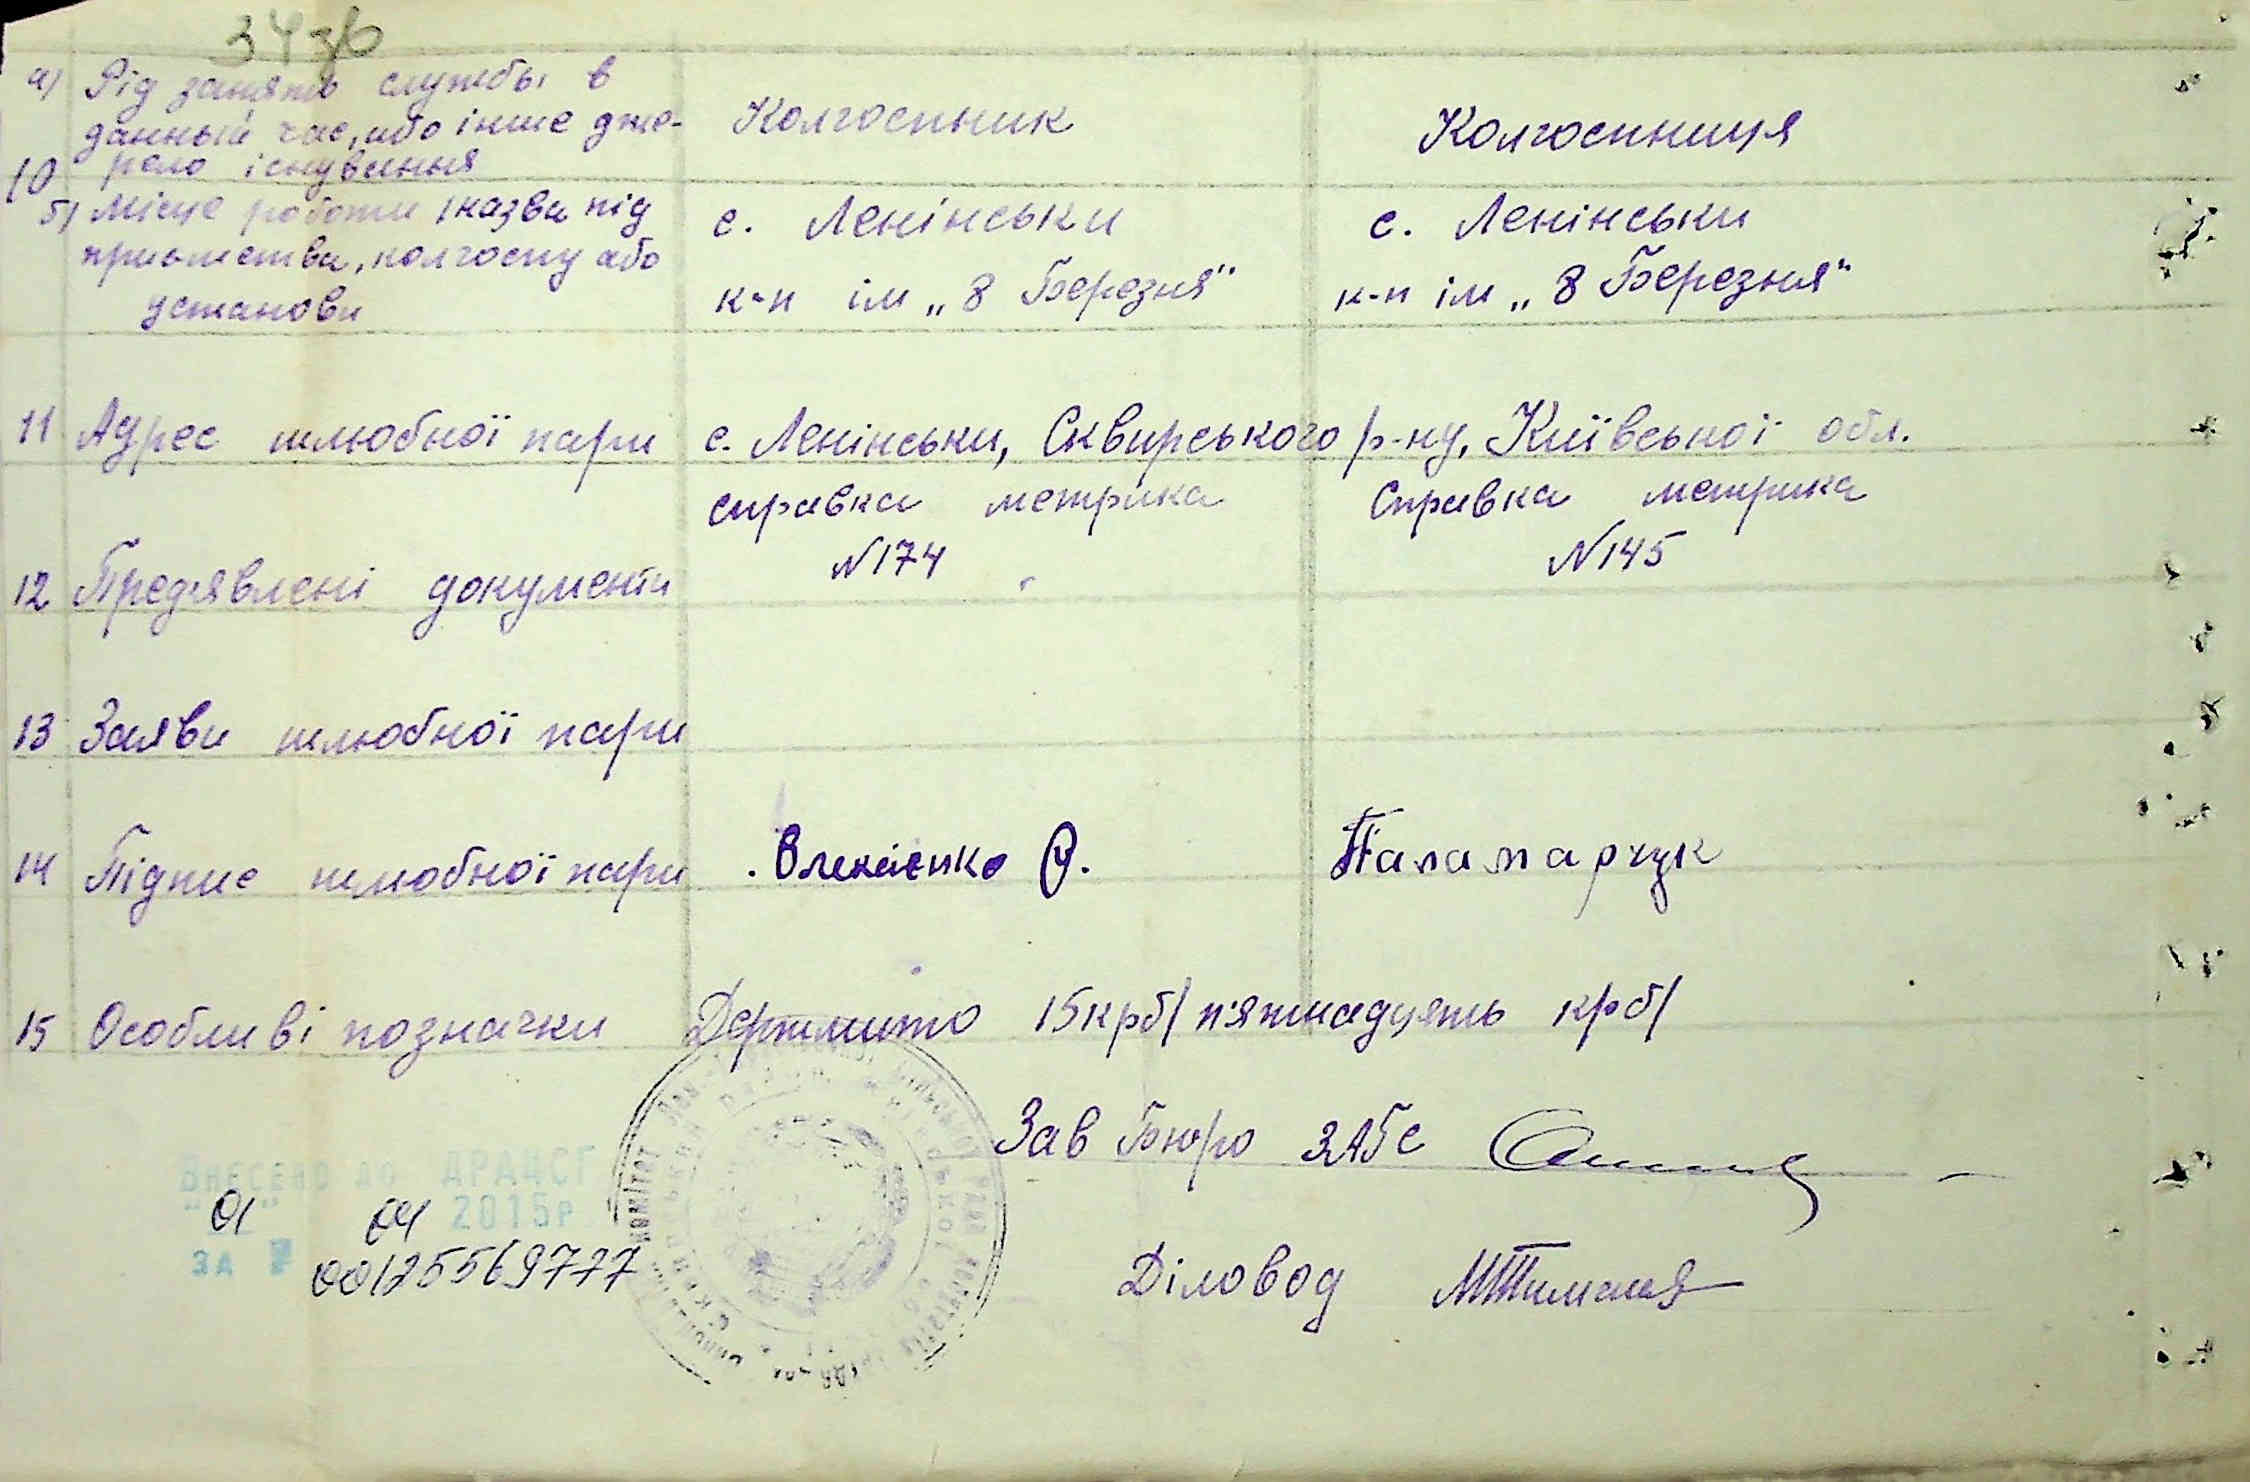 34 зв
а) Рід занять службы в Колгоспник Колгоспниця
данный час, або інше дже-
10 рело існування
б) Місце роботи /назва під с. Ленінськи с. Ленінськи
приємства, колгоспу або к-п ім „8 Березня" к-п ім „8 Березня"
установи
11 Адрес шлюбної пари с. Ленінськи, Сквирського р-ну, Київської обл.
справка метрика Справка метрика
12 Предявлені документи N174 N145
13 Заяви шлюбної пари
14 Підпис шлюбної пари О. Паламарчук
15 Особливі позначки Держмито 15крб/ п'ятнадцять крб/
Зав Бюро ЗАГС
Внесено до ДРАЦСГ
"01" 04 2015р
за № 00125569777
Діловод